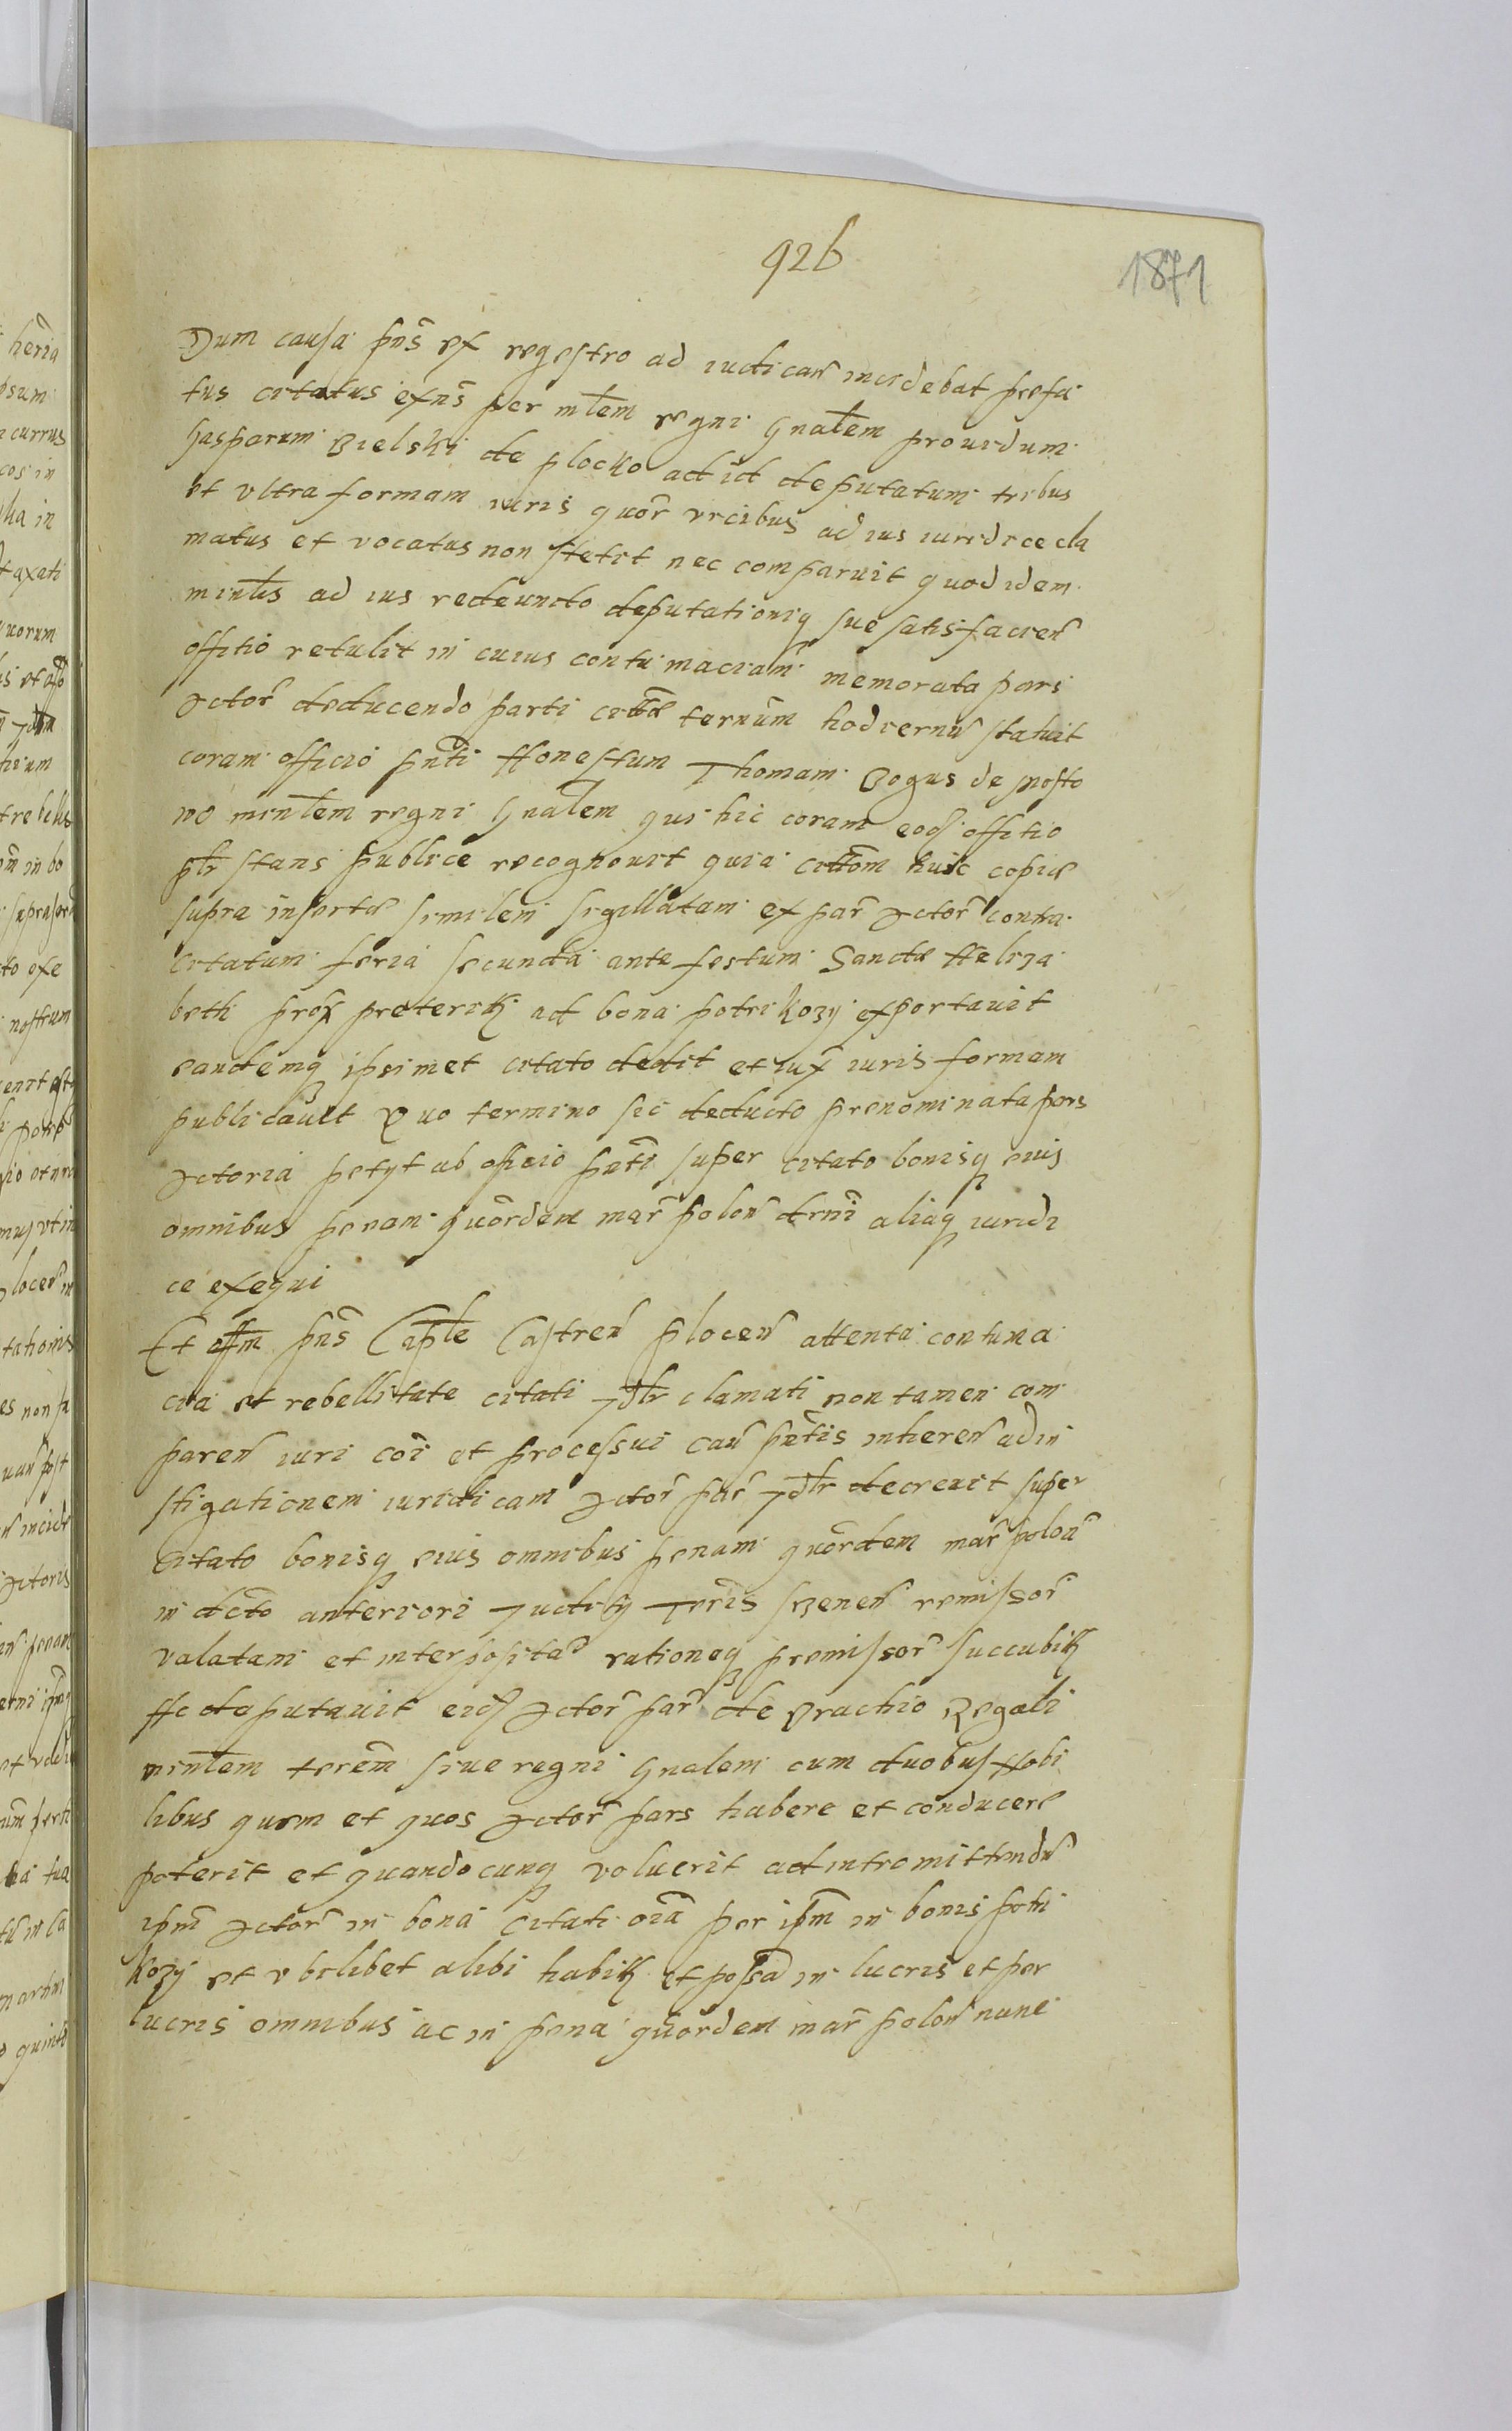 926
1871
Dum causa pñs ex regestro ad iudicañ incidebat prefa
tus citatus exñs per mlem regni gnalem prouidum
Gasparum Bielski de plocko ad id deputatum tribus
et vltra formam iuris quor vicibus ad ius iuridice cla
matus et vocatus non stetit nec comparuit quod idem
minlis ad ius redeundo deputationiq sue satisfacieñ
offitio retulit in cuius contumaciam memorata pars
Actor deducendo parti citae ternum hodiernũ statuit
coram officio pnti Honestum Thomam Bogus de
wo minlem regni gnalem qui hic coram eod offitio
plr stans publice recognouit quia cittom huic copiae
supra insertae similem sigillatam ex par Actor contra
citatum feria secunda ante festum Sanctae Heliza
beth prox preteritũ ad bona potrikozy exportauit
eandemq ipsimet citato dedit et iux iuris formam
publicauit Quo termino sic deducto prenominata pars
Actoria petyt ab officio pnti super citato bonisq eius
omnibus penam quordem mar polon drni aliaq iuridi
ce exequi
Et offm pñs Caple Castreñ Ploceñ attenta contuma
cia et rebellitate citati Idlr clamati non tamen com
pareñ iuri coi et processui cau pntis inhereñ ad in
stigationem iuridicam Actor par Idlr decreuit super
citato bonisq eius omnibus penam quordem mar polon
in dcto anteriori Judicy Terris remissor
valatam et interpositam rationeq premissor succubitũ
Hc deputauit eid Actor par de brachio Regali
minlem terrem siue regni gnalem cum duobus Nobi
libus quem et quos Actor pars habere et conducere
poterit et quandocunq voluerit ad intromittendũ
ipm Actor in bona citati oia per ipm in bonis potri
kozy et vbilibet alibi habitũ et possa in lucris et per
lucris omnibus ac in pena quordem mar polon nunc